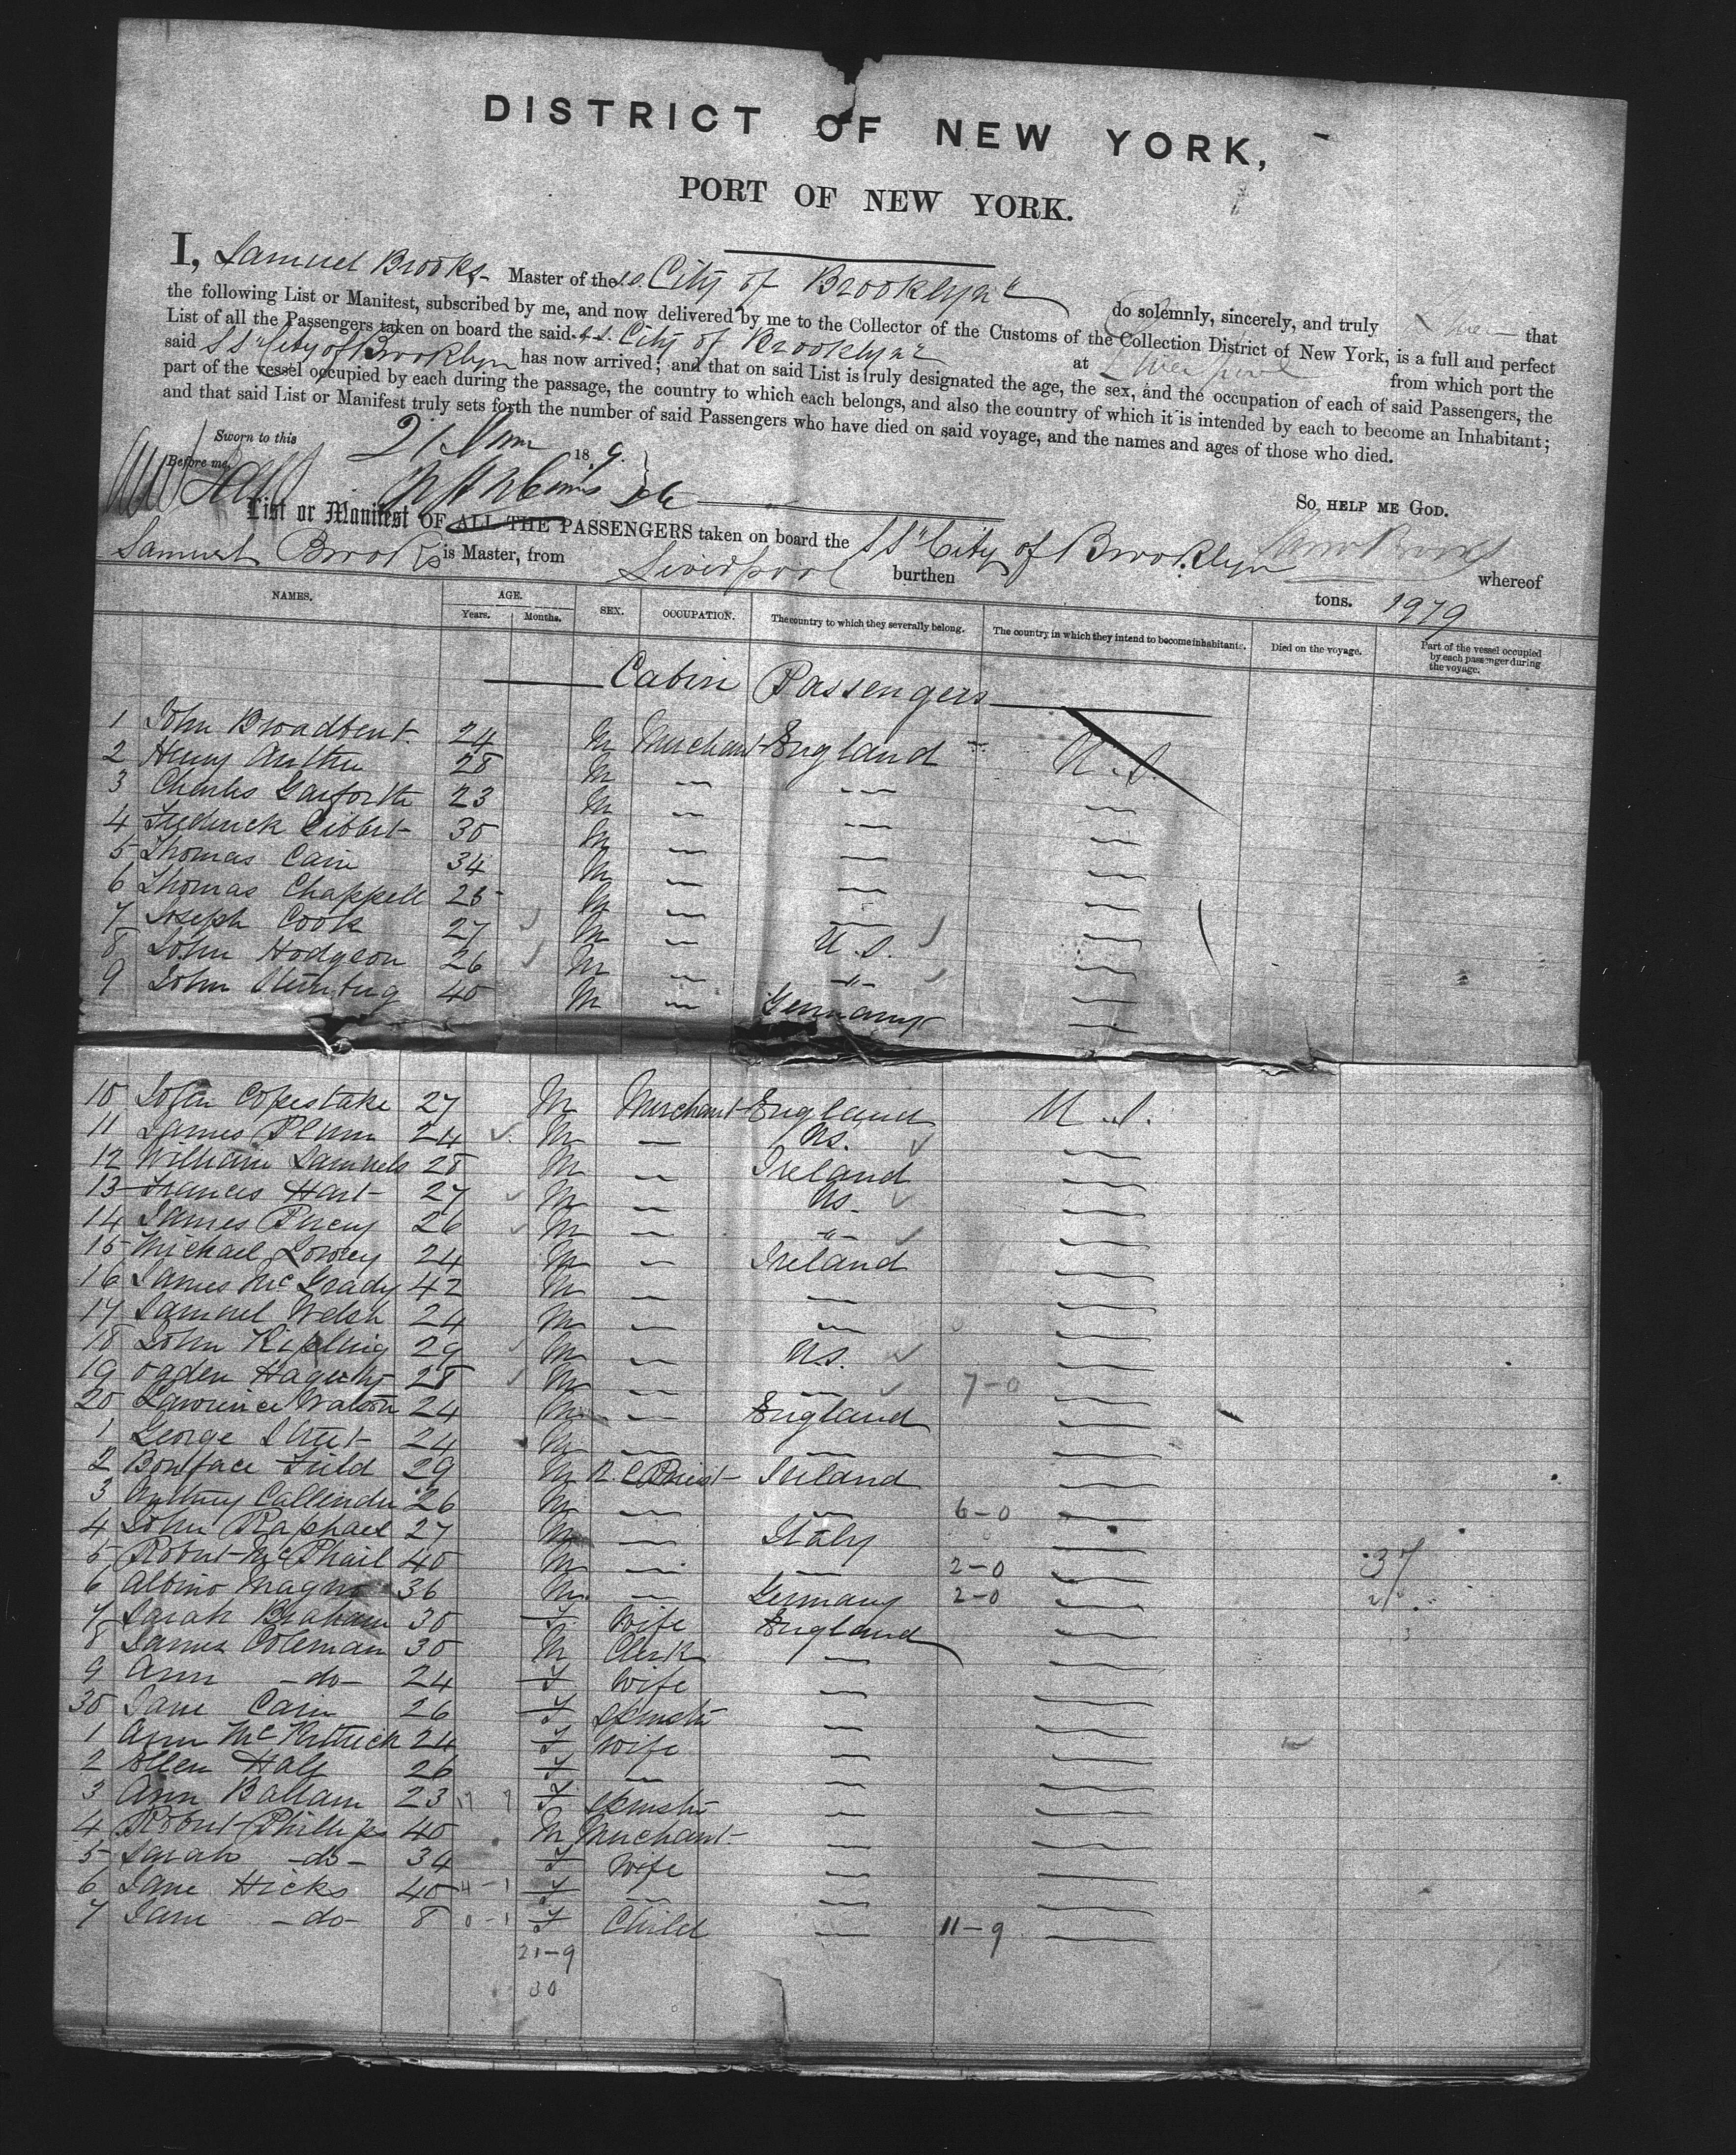 DISTRICT OF NEW YORK,
PORT OF NEW YORK.
I, Samuel Brooks Master of the S.S. City of Brooklyn do solemnly, sincerely, and truly Swear that
the following List or Manifest, subscribed by me, and now delivered by me to the Collector of the Customs of the Collection District of New York, is a full and perfect
List of all the Passengers taken on board the said S.S. City of Brooklyn at Liverpool from which port the
said SS "City of Brooklyn has now arrived; and that on said List is truly designated the age, the sex, and the occupation of each of said Passengers, the
part of the vessel occupied by each during the passage, the country to which each belongs, and also the country of which it is intended by each to become an Inhabitant;
and that said List or Manifest truly sets forth the number of said Passengers who have died on said voyage, and the names and ages of those who died.
Sworn to this 21 18 9.
Before me,
So HELP ME GOD.
Sam Brooks
List or Manifest OF ALL THE PASSENGERS taken on board the SS "City of Brooklyn whereof
Samuel Brooks is Master, from Liverpool burthen tons. 1979
NAMES. AGE. SEX. OCCUPATION. The country to which they severally belong. The country in which they intend to become inhabitants. Died on the voyage. Part of the vessel occupied by each passenger during the voyage.
Years. Months.
Cabin Passengers
1 John Broadbent 24 M Merchant England U.S.
2 Henry 28 M
3 Charles Garforth 23 M
4 Frederick 30 M
5 Thomas Cain 34 M
6 Thomas Chappell 25 M
7 Joseph Cook 27 M U.S.
8 John Hodgson 26 M -"-
9 John 40 M Germany
10 John Copestake 27 M Merchant England U.S.
11 James Plum 24 M US.
12 William Samuels 28 M Ireland
13 Francis Hart 27 M US.
14 James 26 M -"-
15 Michael Lowrey 24 M Ireland
16 James McGrady 42 M
17 Samuel Welsh 24 M
18 John Kipling 29 M U.S.
19 Ogden Hagerty 28 M 7-0
20 Lawrence Watson 24 M England
1 George Street 24 M
2 Boniface Field 29 M R C Priest Ireland
3 Anthony Callender 26 M 6-0
4 John Raphael 27 M Italy
5 Robert McPhail 40 M 2-0 37
6 Albino Magno 36 M Germany 2-0
7 Sarah Braham 30 F Wife England
8 James Coleman 30 M Clerk
9 Ann -do- 24 F Wife
30 Jane Cain 26 F Spinster
1 Ann McKittrick 24 F Wife
2 Ellen Hall 26 F
3 Ann Ballam 23 F Spinster
4 Robert Phillips 40 M Merchant
5 Sarah -do- 34 F Wife
6 Jane Hicks 40 4-1 F
7 Jane -do- 8 0-1 F Child 11-9
21-9
30